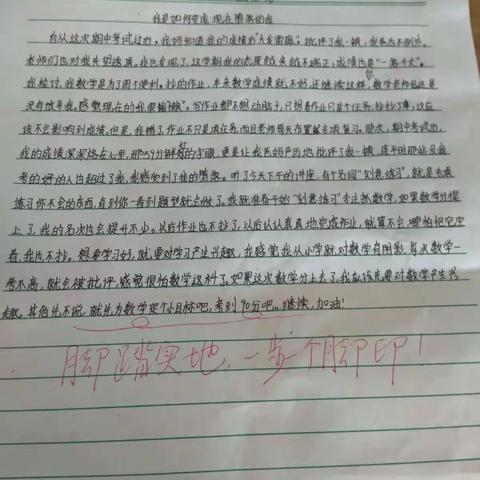 我是如何变成现在堕落的我
自从这次期中考试过后,我妈知道我的成绩后"大发雷霆",批评了我一顿,我爸也不例外。
老师们也对我失望透顶,我也发现了,这学期我的态度越来越不端正,成绩也是"一落千丈"。
我检讨,我数学是为了图个便利,抄的作业,本来数学成绩就不好,还继续这样,数学老师还是
没有放弃我,感觉现在的我很"愉快",写作业都不想动脑子,只想着作业只是个任务,抄抄了事,这应
该不会影响到成绩,但是,我错了,作业不只是项任务,而且老师每天布置基本项复习。那次,期中考试,
我的成绩深深烙在心里,那59分鲜红的字眼,更是让我爸妈严厉地批评了我一顿,连平时那些没我
考的好的人也超过了我,我感受到了我的堕落。听了今天下午的讲座,有个名词"刻意练习",就是去
练习你不会的东西,直到你一看到题型就会做了。我就准备开始"刻意练习"专注抓数学,如果数学分提
上了,我的名次也会提升不少。以后作业也不抄了,以后认认真真地完成作业,就算不会,哪怕把它空
着,我也不抄。想要学习好,就要对学习产生兴趣,我感觉我从小学就对数学有阴影,每次数学一
考不高,就会被批评,感觉很怕数学这科了,如果这次数学分上去了,我应该就要对数学产生兴
趣。其他先不说,就先为数学定个小目标吧,考到90分吧。继续,加油!
脚踏实地,一步一个脚印!